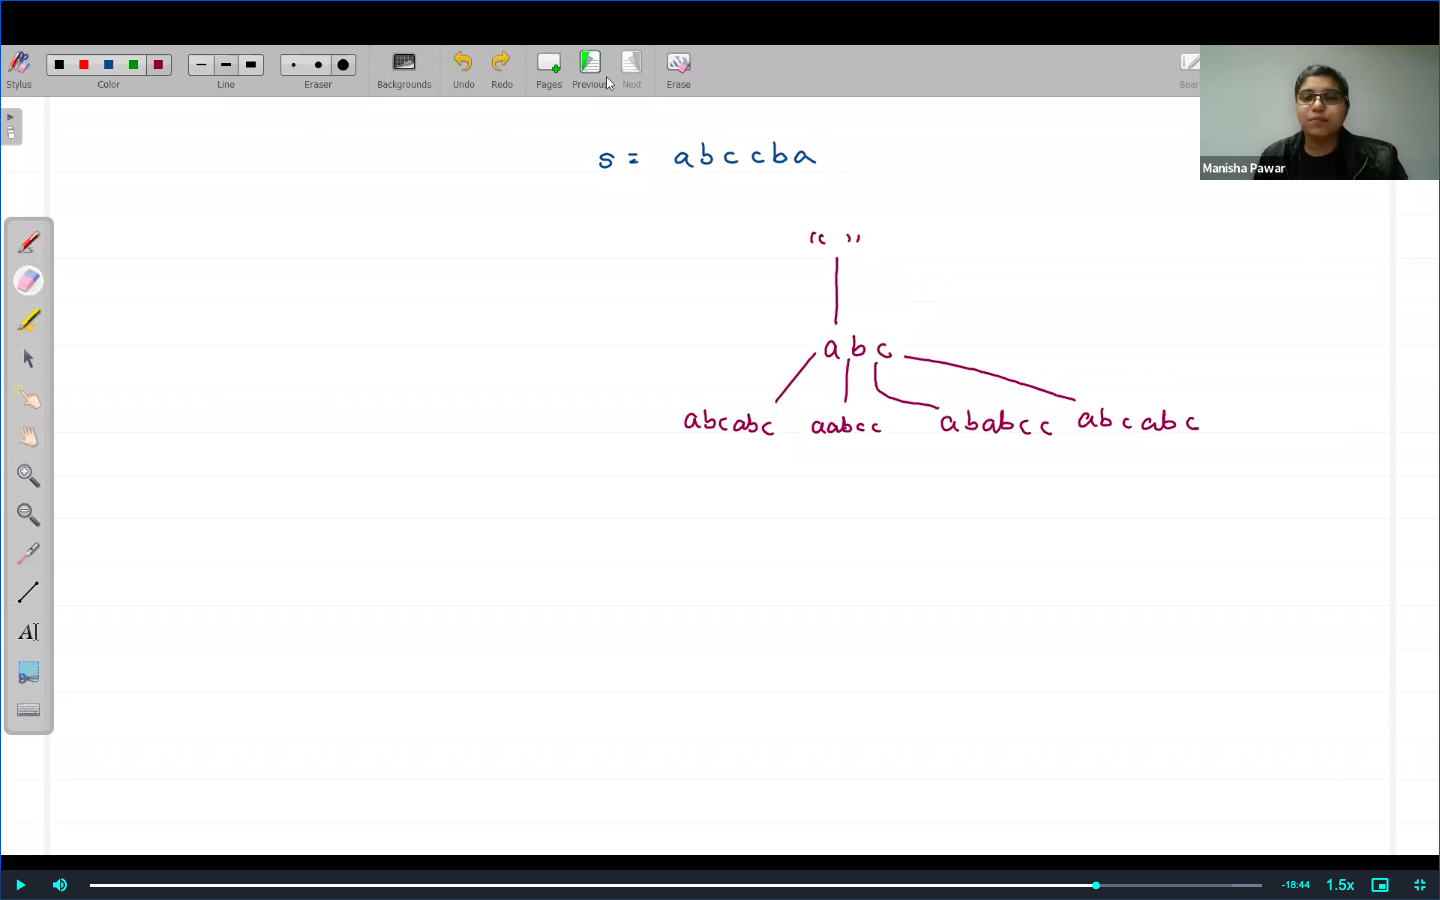 Stylus Color Line Eraser Backgrounds Undo Redo Pages Previous Next Erase Boar
Manisha Pawar
s = abccba
“ ”
abc
abcabc aabcc ababcc abcabc
A
-18:44 1.5x